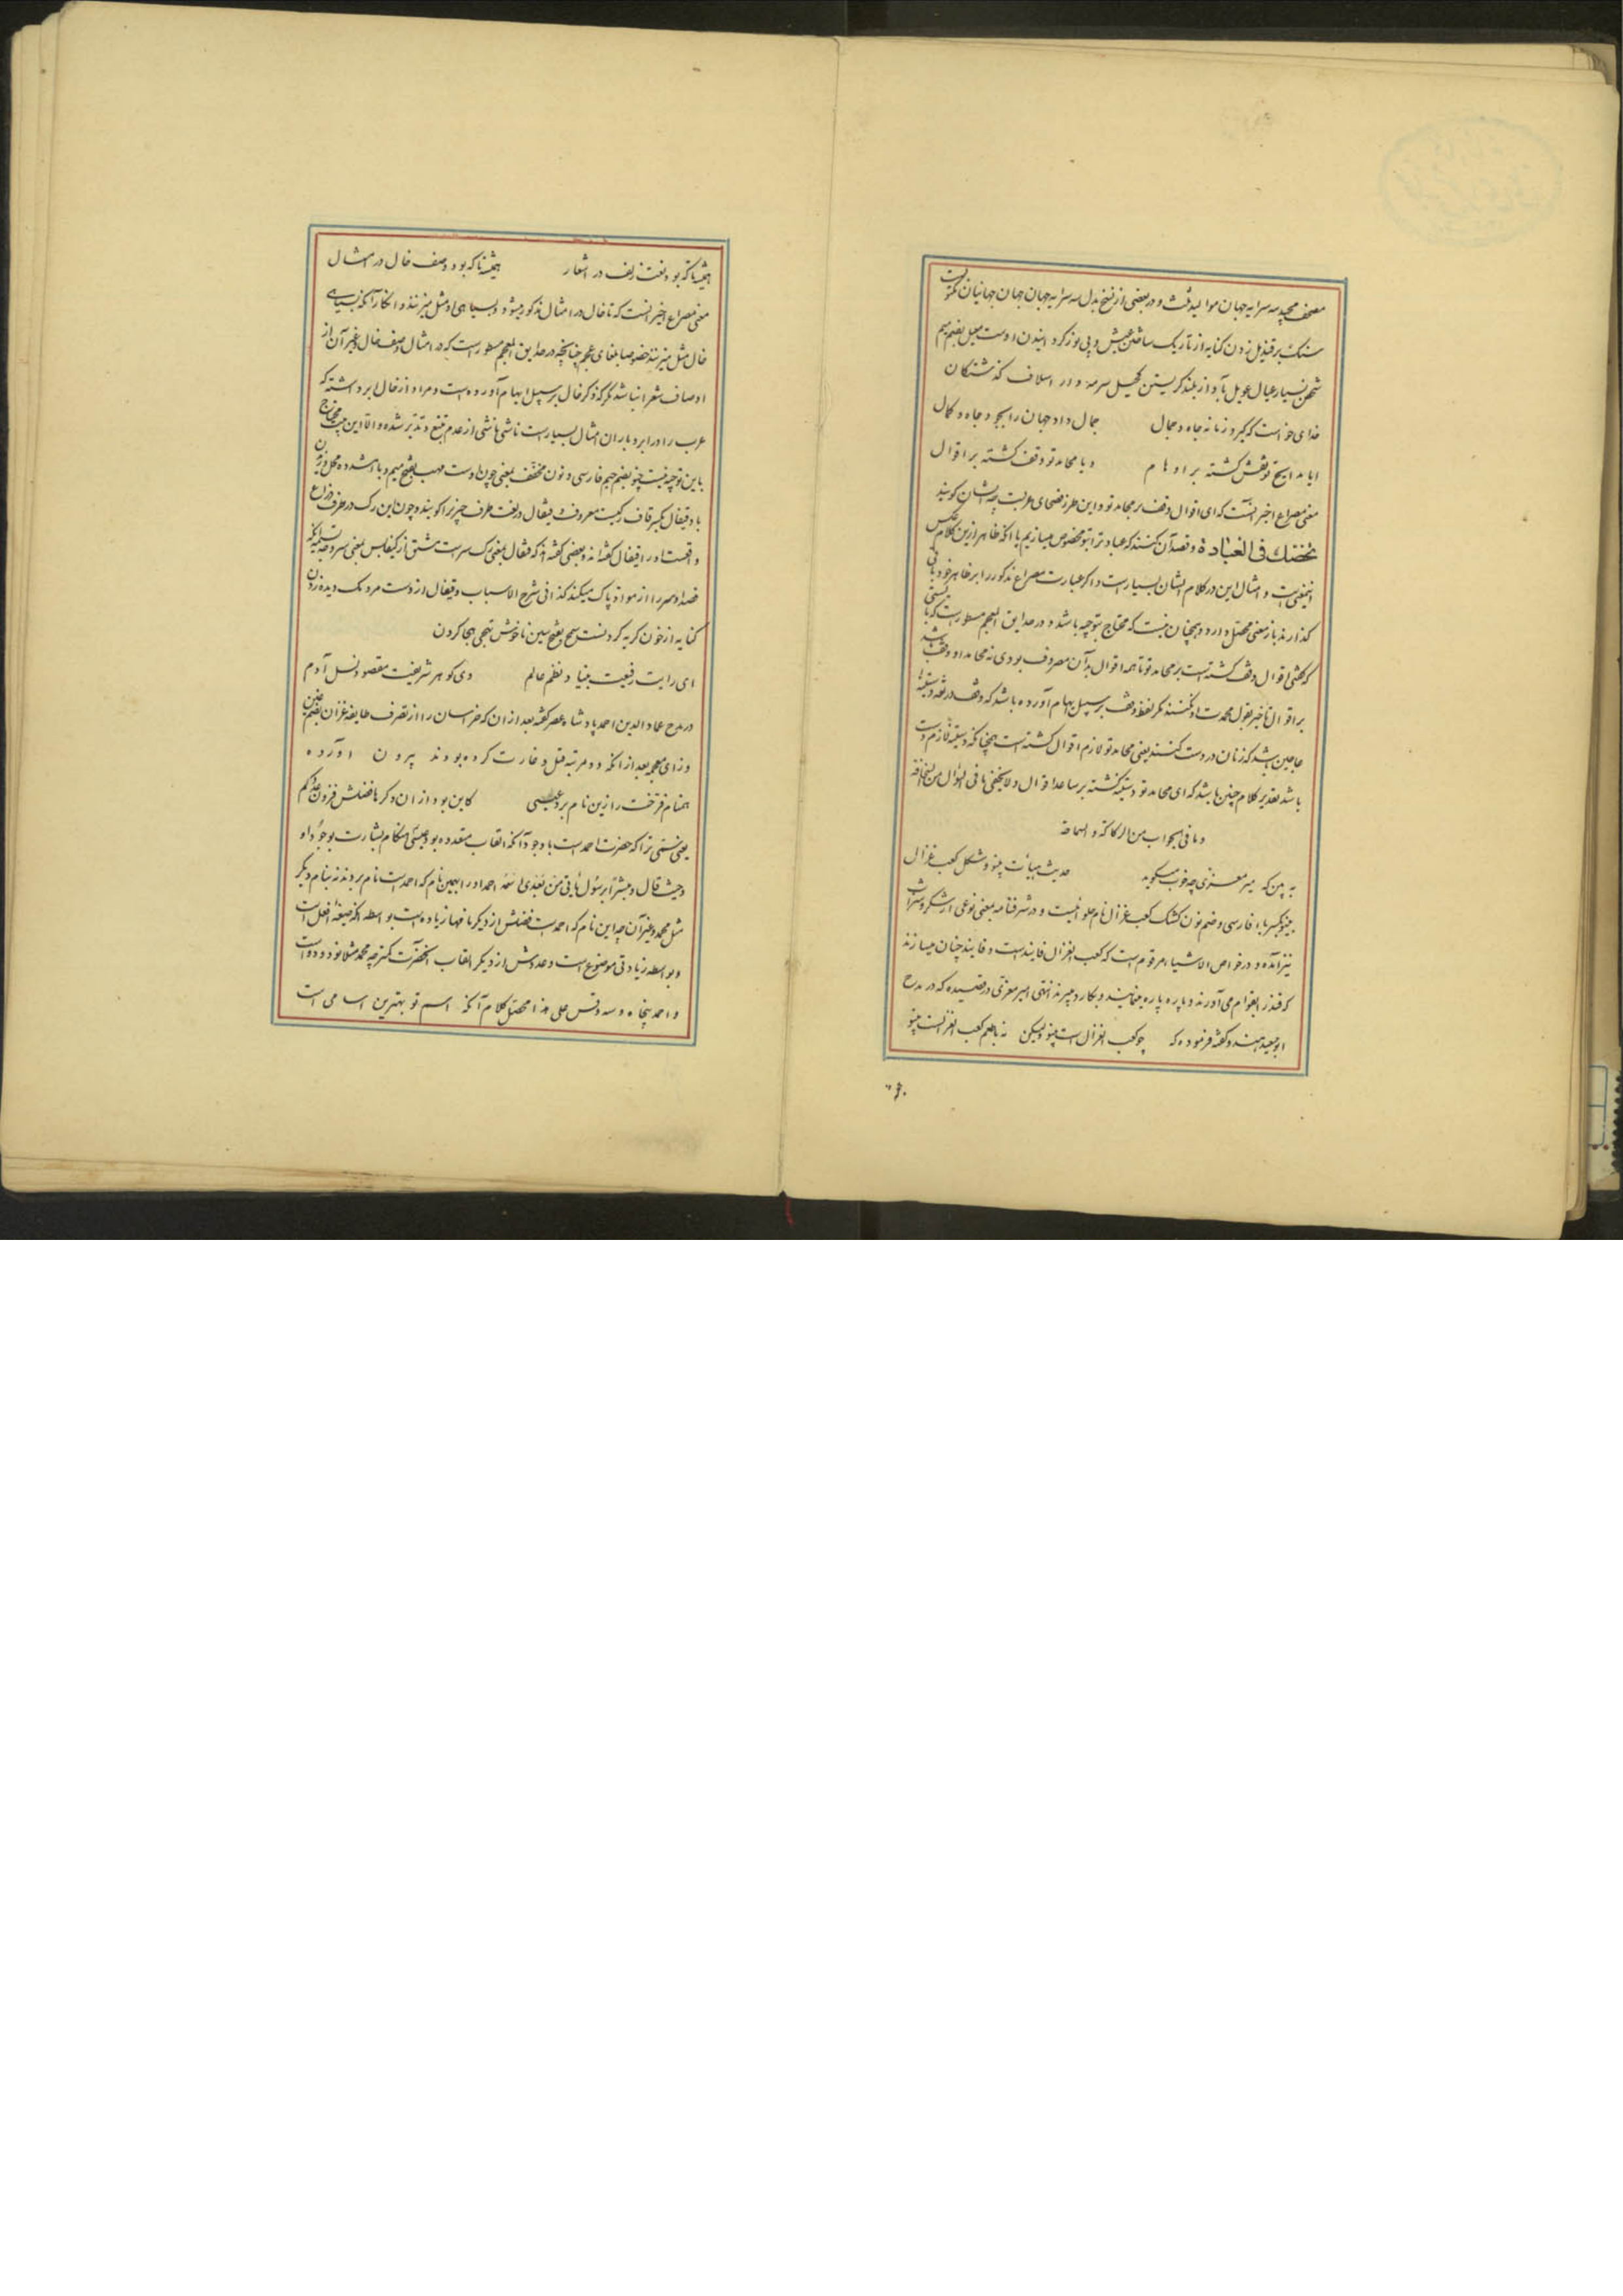 مصحف مجید سه سرایه جهان موالید ثلث و در بعضی از نسخ بدل سه سرایه جهان جهانیان مکتوبست
سنک بر قندیل زدن کنایه از تاریک ساختن عیش و بی نور کردانیدن اوست معیل بضم میم
شخص بسیار عیال عویل بآواز بلند کریستن کحیل سرمه دار اسلاف کذشتکان
خدای خواست که کیرد زمانه جاه و جمال جمال داد جهان را بجود و جاه و کمال
ایا مدایح تو نقش کشته بر اوهام و یا محامد تو وقف کشته بر اقوال
معنی مصراع اخیر آنست که ای اقوال وقف بر محامد تو و این طرز فصحای عربست چه ایشان کویند
نخصّک فی العبادة و قصد آن کنند که عبادت را بتو مخصوص میسازیم با آنکه ظاهر ازین کلام عکس
اینمعنیست و امثال این در کلام ایشان بسیارست و اکر عبارت مصراع مذکور را بر ظاهر خود باقی
کذارند باز معنی محصّل دارد و همچنان نیست که محتاج بتوجیه باشد و در حدایق المعجم مسطورست که بایستی
که کفتی اقوال وقف کشتست بر محامد تو تا همه اقوال بدآن مصروف بودی نه محامد او وقف باشد
بر اقوال تا خیر بقول محمدت او نکنند مکر لفظ وقف بر سبیل ایهام آورده باشد که وقف در لغة دستینهٔ
عاجین باشد که زنان در دست کنند یعنی محامد تو لازم اقوال کشتست همچنانکه دستینه لازم دست
باشد تقدیر کلام چنین باشد که ای محامد تو دستینه کشته بر ساعد اقوال و لا یخفی ما فی السؤال من السخافة
و ما فی الجواب من الرکاکة و السماجة
به بین که میر معزی چه خوب میکوید حدیث هیأت پینو و شکل کعب غزال
پینو بکسر باء فارسی و ضم نون کشک کعب غزال نام حلوائیست و در شرفنامه بمعنی نوعی از شکر و شراب
نیز آمده و در خواص الاشیاء مرقوم است که کعب الغزال فانیدست و فانید چنان میسازند
که قند را بقوام می آورند و پاره پاره میمانیند و بکار دمیبرند انتهی امیر معزی در قصیده که در مدح
ابو سعید هندو کفته فرموده که چو کعب الغزال است پینو ولیکن نه با طعم کعب الغزالست پینو
همیشه تا که بود نعت زلف در اشعار همیشه تا که بود وصف خال در امثال
معنی مصراع اخیر آنست که تا خال در امثال مذکور میشود و بسیاهی او مثل میزنند و انکار آنکه بسیاهی
خال مثل میزنند خصوصا بلغای عجم چنانچه در حدایق المعجم مسطورست که در امثال وصف خال و غیر آن از
اوصاف شعرا نباشد مکر که ذکر خال بر سبیل ایهام آورده است و مراد از خال ابر داشته که
عرب را در ابر و باران امثال بسیارست ناشی از عدم تتبع و تدبر شده و الا این بیت محتاج
باین توجیه نیست چنو بضم جیم فارسی و نون مخفف بمعنی چون اوست مهب بفتح میم و با مشدده محل وزیدن
باد قیفال بکسر قاف رکیست معروف و قیفال در لغت طرف چیز را کویند و چون این رک در طرف ذراع
واقعست او را قیفال کفته اند و بعضی کفته اند که قیفال بمعنی رک سرست مشتق از کیفالس بمعنی سر و وجه تسمیه آنکه
فصد او سر را از مواد پاک میکند کذا فی شرح الاسباب و قیفال از دست مردمک دیده زدن
کنایه از خون کریه کردنست سح بفتح سین ناخوش تهجی هجا کردن
ای رایت رفیعت بنیاد نظم عالم وی کوهر شریفت مقصود نسل آدم
در مدح عماد الدین احمد پادشاه عصر کفته بعد ازان که خراسان را از تصرف طایفه غزان بضم غین
و زای معجمه بعد از انکه دو مرتبه قتل و غارت کرده بودند بیرون آورده
همنام فرخت را زین نام برد عیسی کاین بود ازان دکرها فضلش فزون و کم
یعنی سمّی ترا که حضرت احمدست با وجود آنکه القاب متعدده بود عیسی هنکام بشارت بوجود او
و حیث قال و مبشّراً برسول یأتی من بعدی اسمه احمد او را بهمین نام که احمدست نام برد نه بنام دیکر
مثل محمد و غیر آن چه این نام که احمدست فضلش از دیکر نامها زیاده است بواسطه آنکه صیغهٔ افعل است
و بواسطه زیادتی موضوع است و عددش از دیکر القاب آنحضرت کمتر چه محمد مثلا نود و دو است
و احمد پنجاه و سه و قس علی هذا محصّل کلام آنکه اسم تو بهترین اسامی است